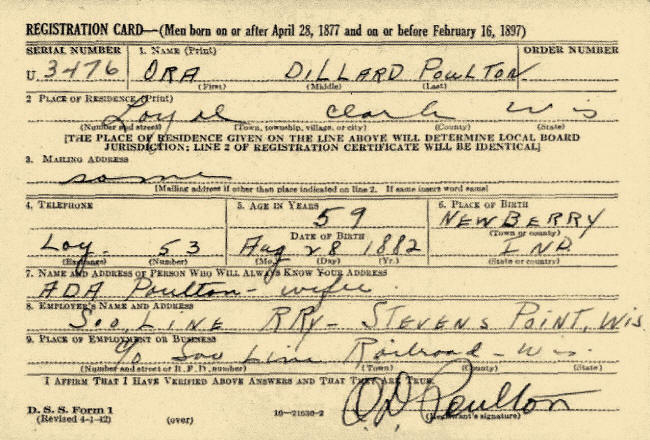 REGISTRATION CARD—(Men born on or after April 28, 1877 and on or before February 16, 1897)
SERIAL NUMBER 1. NAME (Print) ORDER NUMBER
U. 3476 ORA DILLARD POULTON
(First) (Middle) (Last)
2 PLACE OF RESIDENCE (Print)
Loyal Clark Wis
(Number and street) (Town, township, village, or city) (County) (State)
[THE PLACE OF RESIDENCE GIVEN ON THE LINE ABOVE WILL DETERMINE LOCAL BOARD
JURISDICTION; LINE 2 OF REGISTRATION CERTIFICATE WILL BE IDENTICAL]
3. MAILING ADDRESS
same
[Mailing address if other than place indicated on line 2. If same insert word same]
4. TELEPHONE 5. AGE IN YEARS 6. PLACE OF BIRTH
59 NEWBERRY
DATE OF BIRTH (Town or county)
Loy- 53 Aug 28 1882 IND.
(Exchange) (Number) (Mo.) (Day) (Yr.) (State or country)
7. NAME AND ADDRESS OF PERSON WHO WILL ALWAYS KNOW YOUR ADDRESS
ADA Poulton - wife
8. EMPLOYER'S NAME AND ADDRESS
Soo, LINE RRy - STEVENS POINT, Wis
9. PLACE OF EMPLOYMENT OR BUSINESS
c/o Soo Line Railroad - Wis.
(Number and street or R. F. D. number) (Town) (County) (State)
I AFFIRM THAT I HAVE VERIFIED ABOVE ANSWERS AND THAT THEY ARE TRUE.
O.D. Poulton
D. S. S. Form 1
(Revised 4-1-42) (over) 16—21630-2 (Registrant's signature)